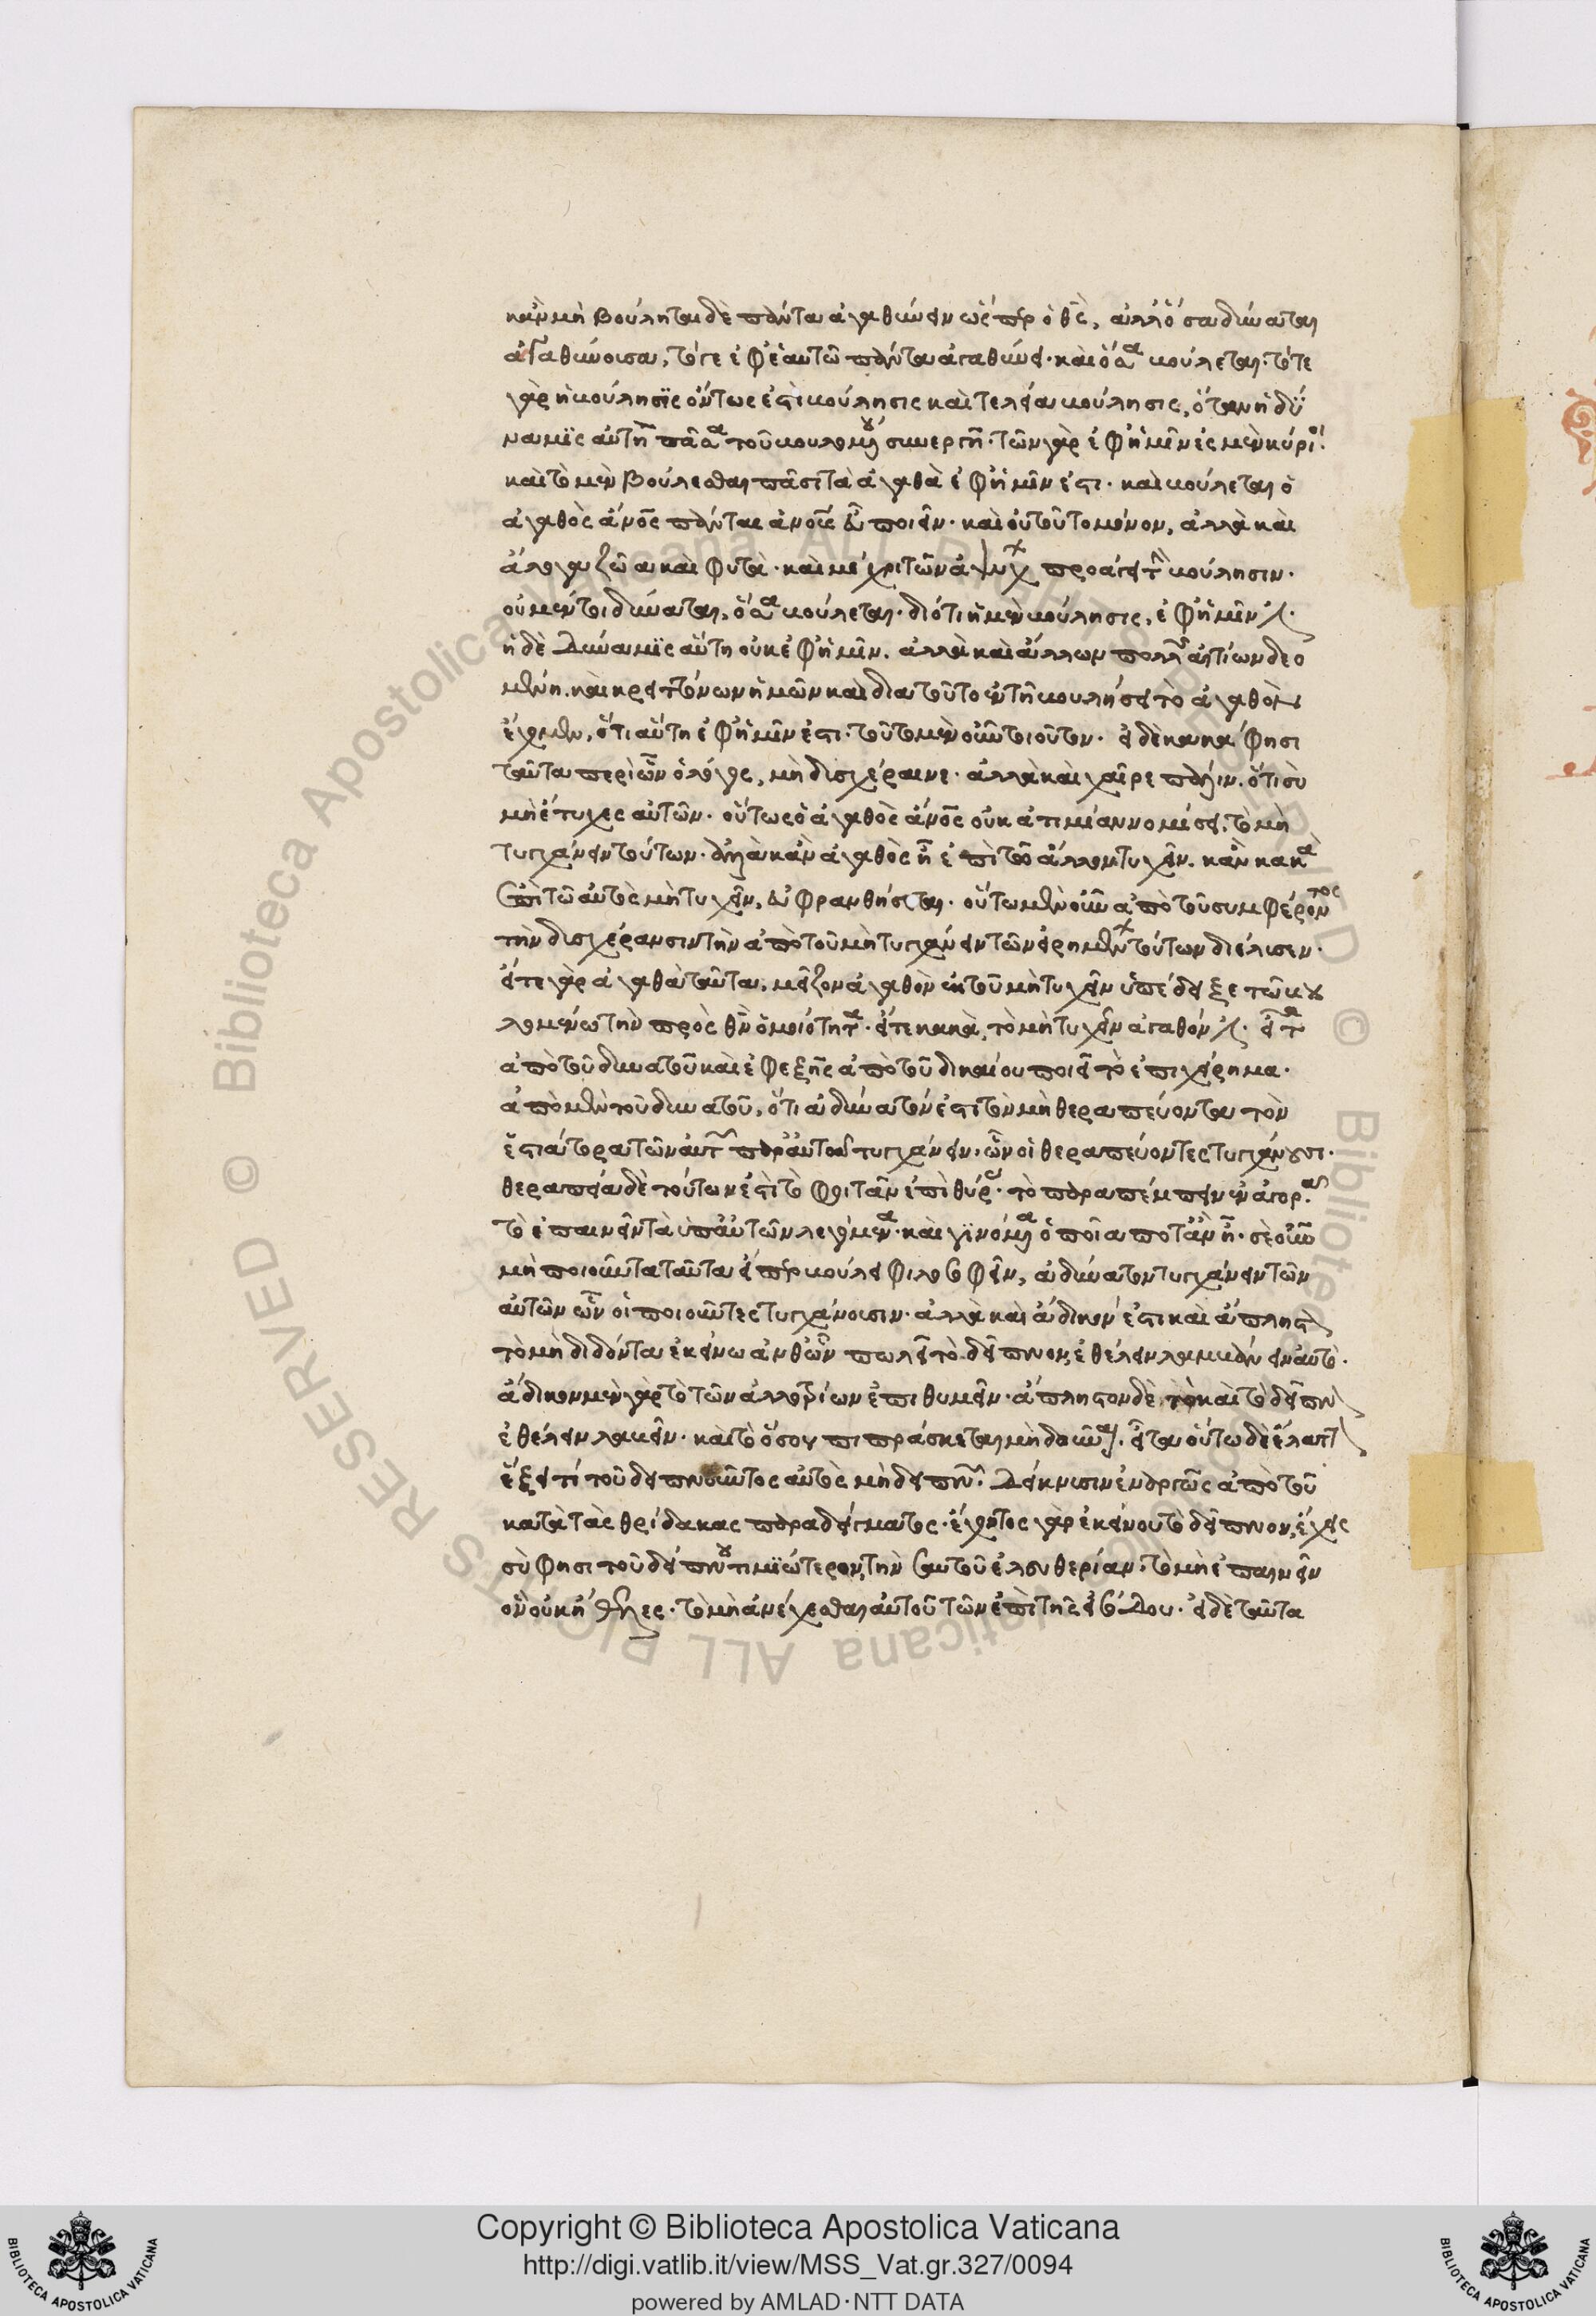 κἂν μὴ βούληται δὲ πάντα ἀγαθύνειν ὥσπερ ὁ θς, ἀλλ' ὅσα δύναται
ἀγαθύνουσα, τότε ἐφ' ἑαυτῶ πάντα ἀγαθύνει· καὶ ὅσα βούλεται· τότε
γὰρ ἡ βούλησις ὄντως ἐστὶ βούλησις καὶ τελεία βούλησις, ὅταν ἡ δύ
ναμις αὐτῆ τοῦ βουλομένου συνεργῆ· τῶν γὰρ ἐφ' ἡμῖν ἐσμὲν κύριοι·
καὶ τὸ μὲν βούλεσθαι πᾶσι τὰ ἀγαθὰ ἐφ' ἡμῖν ἐστι· καὶ βούλεται ὁ
ἀγαθὸς ἄνος πάντας ἀνους εὖ ποιεῖν· καὶ οὐ τοῦτο μόνον, ἀλλὰ καὶ
ἄλογα ζῶα καὶ φυτὰ· καὶ μέχρι τῶν ἀψύχων προάγει τὴν βούλησιν·
οὐ μέντοι δύναται, ὅσα βούλεται· διότι ἡ μὲν βούλησις, ἐφ' ἡμῖν ἐστι·
ἡ δὲ δύναμις αὕτη οὐκ ἐφ' ἡμῖν· ἀλλὰ καὶ ἄλλων πολλῶν αἰτίων δεο
μένη· καὶ κρειττόνων ἡμῶν καὶ διὰ τοῦτο ἐν τῆ βουλήσει τὸ ἀγαθὸν
ἔχομεν, ὅτι αὕτη ἐφ' ἡμῖν ἐστι· τοῦτο μὲν οὖν τοιοῦτον· εἰ δὲ κακά φησι
ταῦτα περὶ ὧν ὁ λόγος, μὴ δυσχέραινε· ἀλλὰ καὶ χαῖρε πάλιν· ὅτι σὺ
μὴ ἔτυχες αὐτῶν· οὕτως ὁ ἀγαθὸς ἄνος οὐκ ἀτιμίαν νομίσει, τὸ μὴ
τυγχάνειν τούτων· ἀλλὰ κἂν ἀγαθὸς ἦ ἐπὶ τῶ ἄλλον τυχεῖν· κἂν κακὰ
ἐπὶ τῶ αὐτὸς μὴ τυχεῖν, εὐφρανθήσεται· οὕτω μὲν οὖν ἀπὸ τοῦ συμφέροντος
τὴν δυσχέρανσιν τὴν ἀπὸ τοῦ μὴ τυγχάνειν τῶν εἰρημένων τούτων διέλυσεν·
εἴτε γὰρ ἀγαθὰ ταῦτα, μεῖζον ἀγαθὸν ἐκ τοῦ μὴ τυχεῖν ὑπέδειξε τῶ βου
λομένω τὴν πρὸς θν ὁμοιότητα· εἴτε κακὰ, τὸ μὴ τυχεῖν ἀγαθόν ἐστι· εἶτα
ἀπὸ τοῦ δυνατοῦ καὶ ἐφεξῆς ἀπὸ τοῦ δικαίου ποιεῖ τὸ ἐπιχείρημα·
ἀπὸ μὲν τοῦ δυνατοῦ, ὅτι ἀδύνατόν ἐστι τὸν μὴ θεραπεύοντα τὸν
ἑστιάτορα τῶν αὐτῶν παρ' αὐτοῦ τυγχάνειν· ὧν οἱ θεραπεύοντες τυγχάνουσι·
θεραπεία δὲ τούτων ἐστὶ τὸ φοιτᾶν ἐπὶ θύρας· τὸ παραπέμπειν ἐν ἀγορᾶ·
τὸ ἐπαινεῖν τὰ ὑπ' αὐτῶν λεγόμενα· καὶ γινόμενα ὁποῖα ποτ' ἂν ἦ· σὲ οὖν
μὴ ποιοῦντα ταῦτα εἴπερ βούλει φιλοσοφεῖν, ἀδύνατον τυγχάνειν τῶν
αὐτῶν ὧν οἱ ποιοῦντες τυγχάνουσιν· ἀλλὰ καὶ ἄδικόν ἐστι καὶ ἄπληστον
τὸ μὴ διδόντα ἐκείνω ἀνθ' ὧν πωλεῖ τὸ δεῖπνον, ἐθέλειν λαμβάνειν αὐτό·
ἄδικον μὲν γὰρ τὸ τῶν ἀλλοτρίων ἐπιθυμεῖν· ἄπληστον δὲ τὸ καὶ τὸ δεῖπνον
ἐθέλειν λαβεῖν· καὶ τὸ ὅσου πιπράσκεται μὴ δοῦναι· εἶτα οὕτω δὲ ἔλαττον
ἕξει τί τοῦ δειπνοῦντος αὐτὸς μὴ δειπνῶν· δείκνυσιν ἐναργῶς ἀπὸ τοῦ
κατὰ τὰς θρίδακας παραδείγματος· ἔχοντος γὰρ ἐκείνου τὸ δεῖπνον, ἔχεις
σύ φησι τοῦ δείπνου τιμιώτερον, τὴν σαυτοῦ ἐλευθερίαν· τὸ μὴ ἐπαινεῖν
ὃν οὐκ ἤθελες· τὸ μὴ ἀνέχεσθαι αὐτοῦ τῶν ἐπὶ τῆς εἰσόδου· εἰ δὲ ταῦτα
Copyright © Biblioteca Apostolica Vaticana
http://digi.vatlib.it/view/MSS_Vat.gr.327/0094
powered by AMLAD·NTT DATA